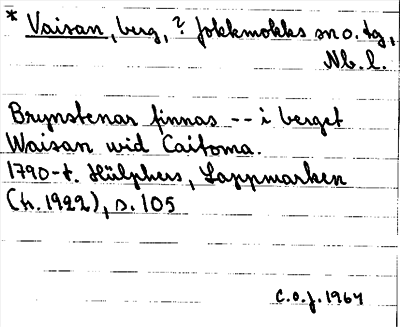 * Vaisan, berg, ? Jokkmokks sn o. tg,
Nb. l.
Brynstenar finnas -- i berget
Waisan wid Caitoma.
1790-t. Hülphers, Lappmarken
(tr. 1922), s. 105
C.O.J. 1964